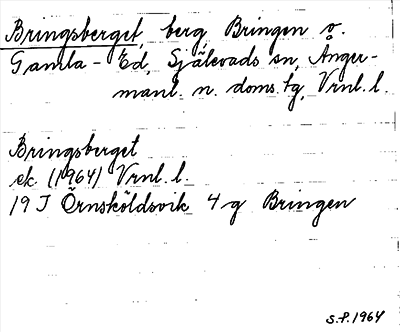 Bringsberget, berg, Bringen o.
Gamla-Ed, Själevads sn, Ånger-
manl. n. doms. tg, Vrnl. l.
Bringsberget
ek. (1964) Vrnl. l.
19 J Örnsköldsvik 4 g Bringen
S.P. 1964